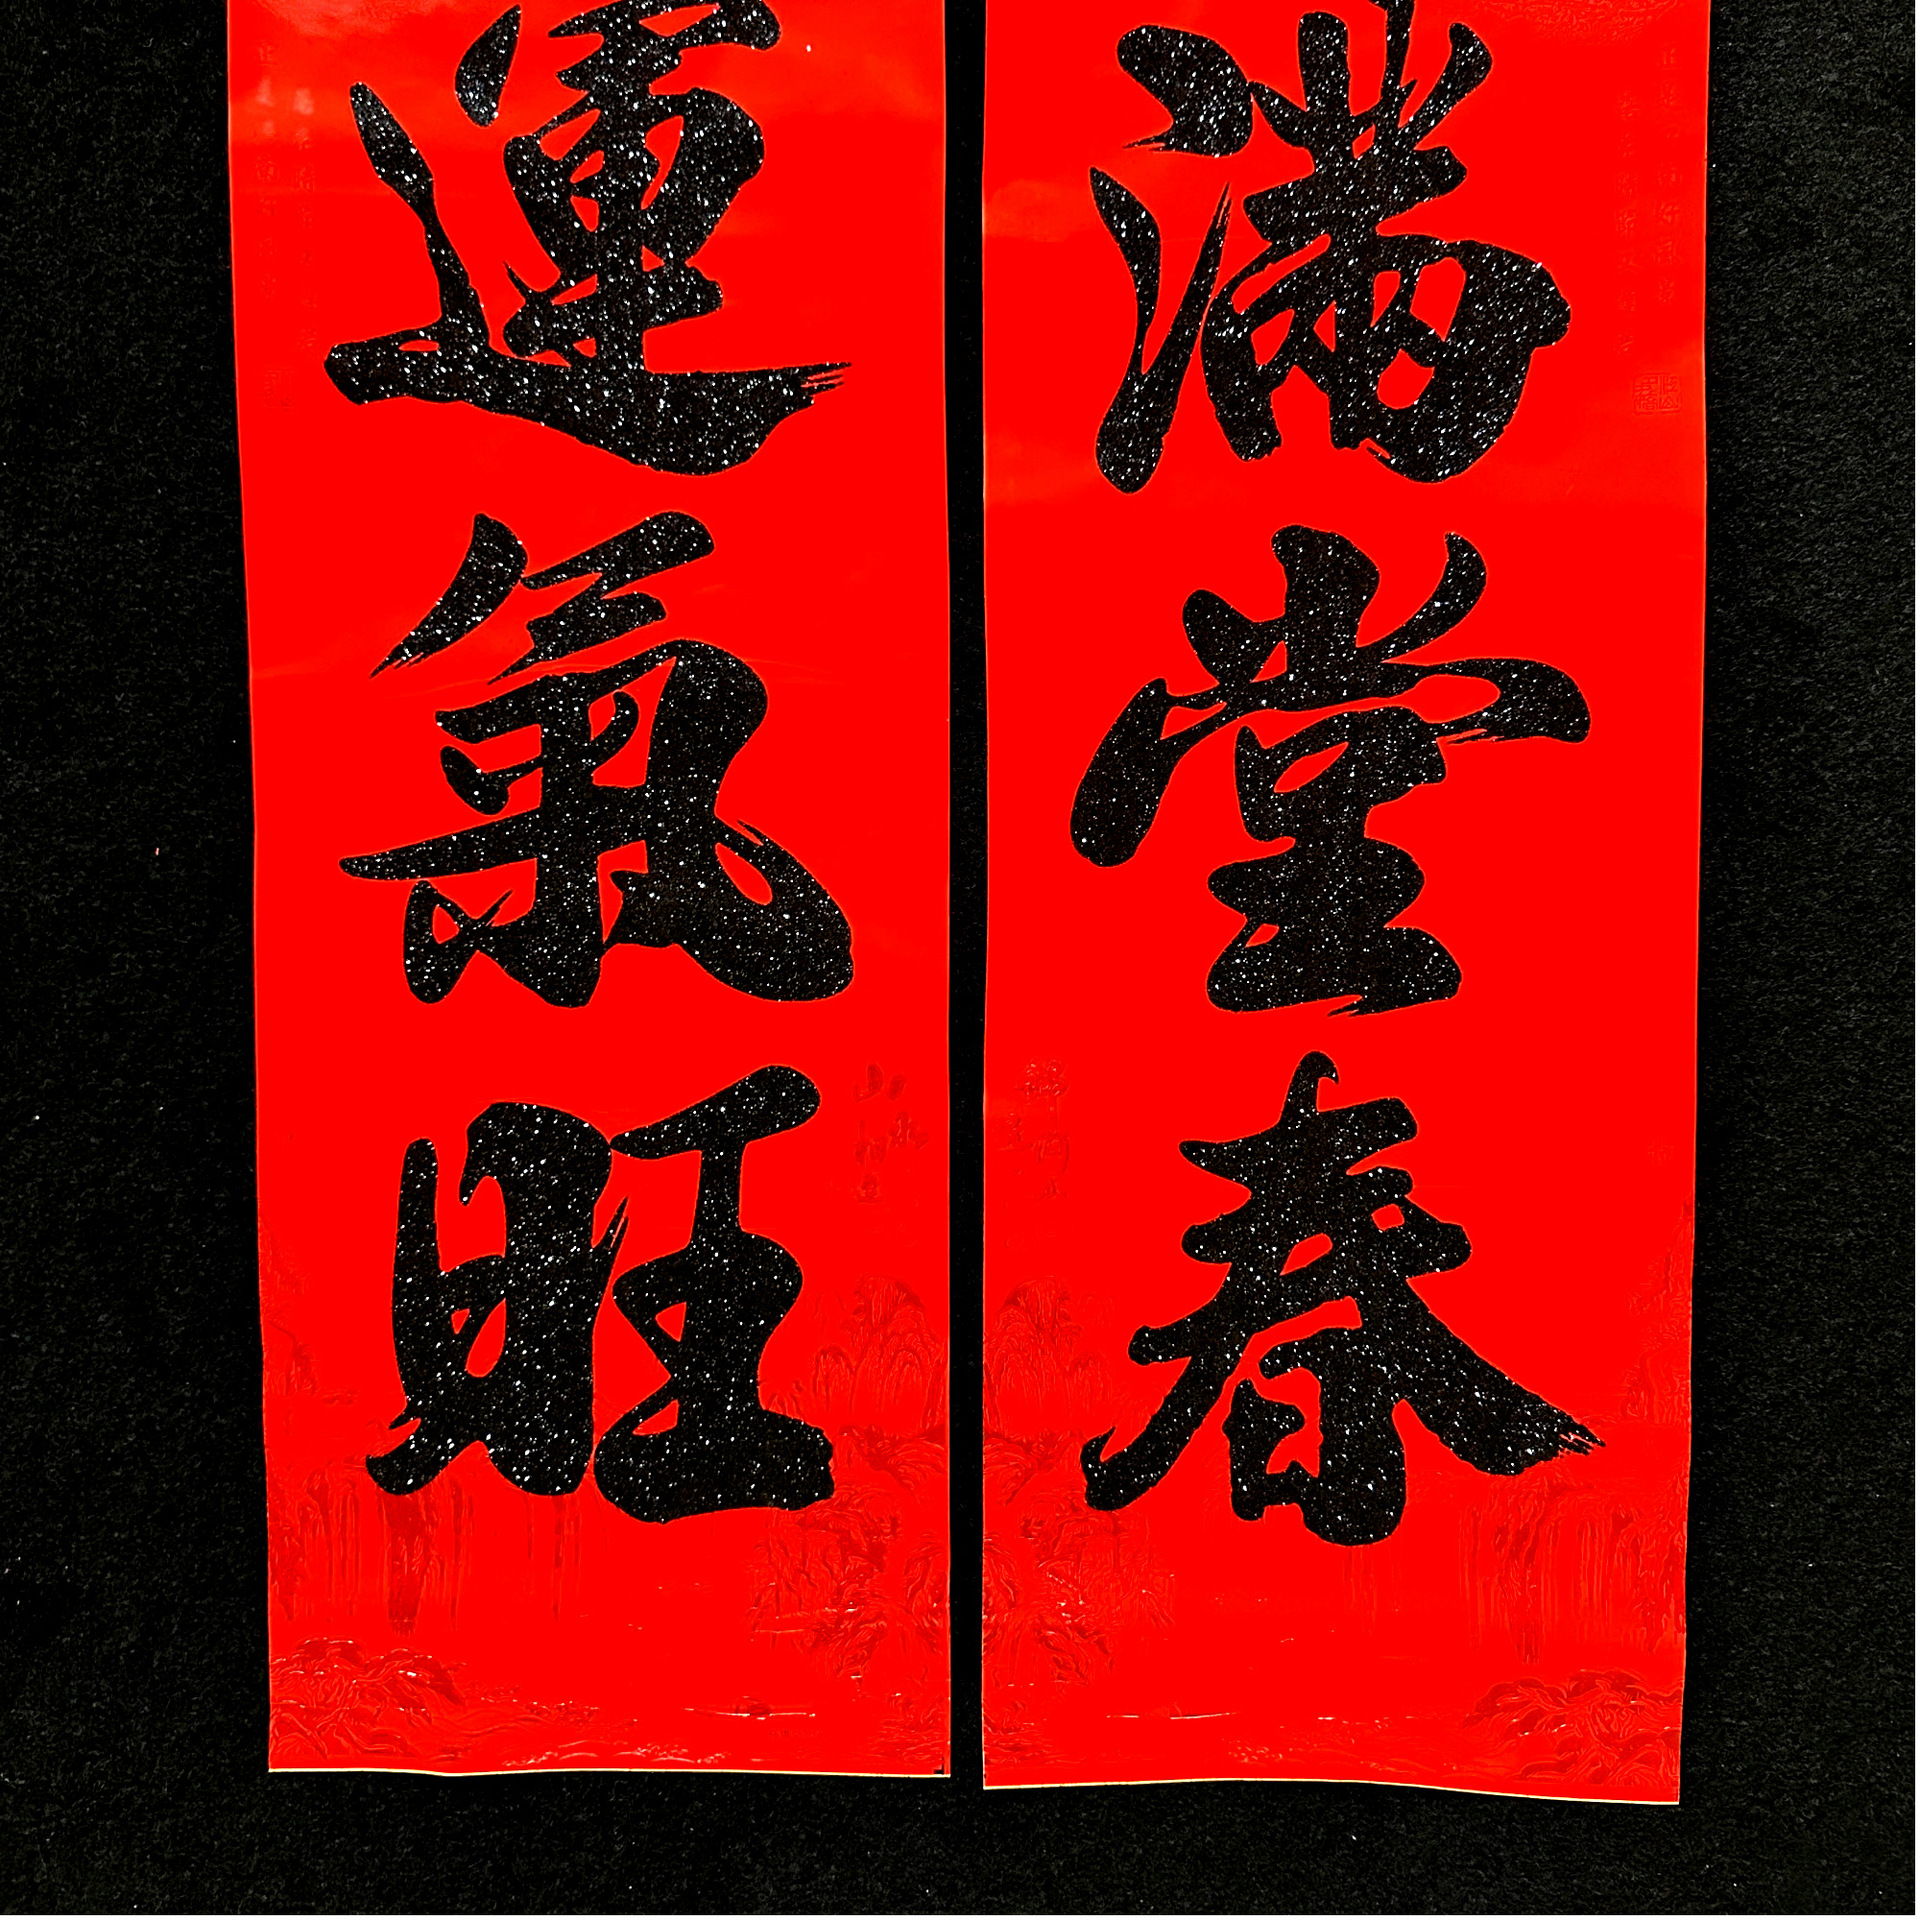 滿堂春
運氣旺